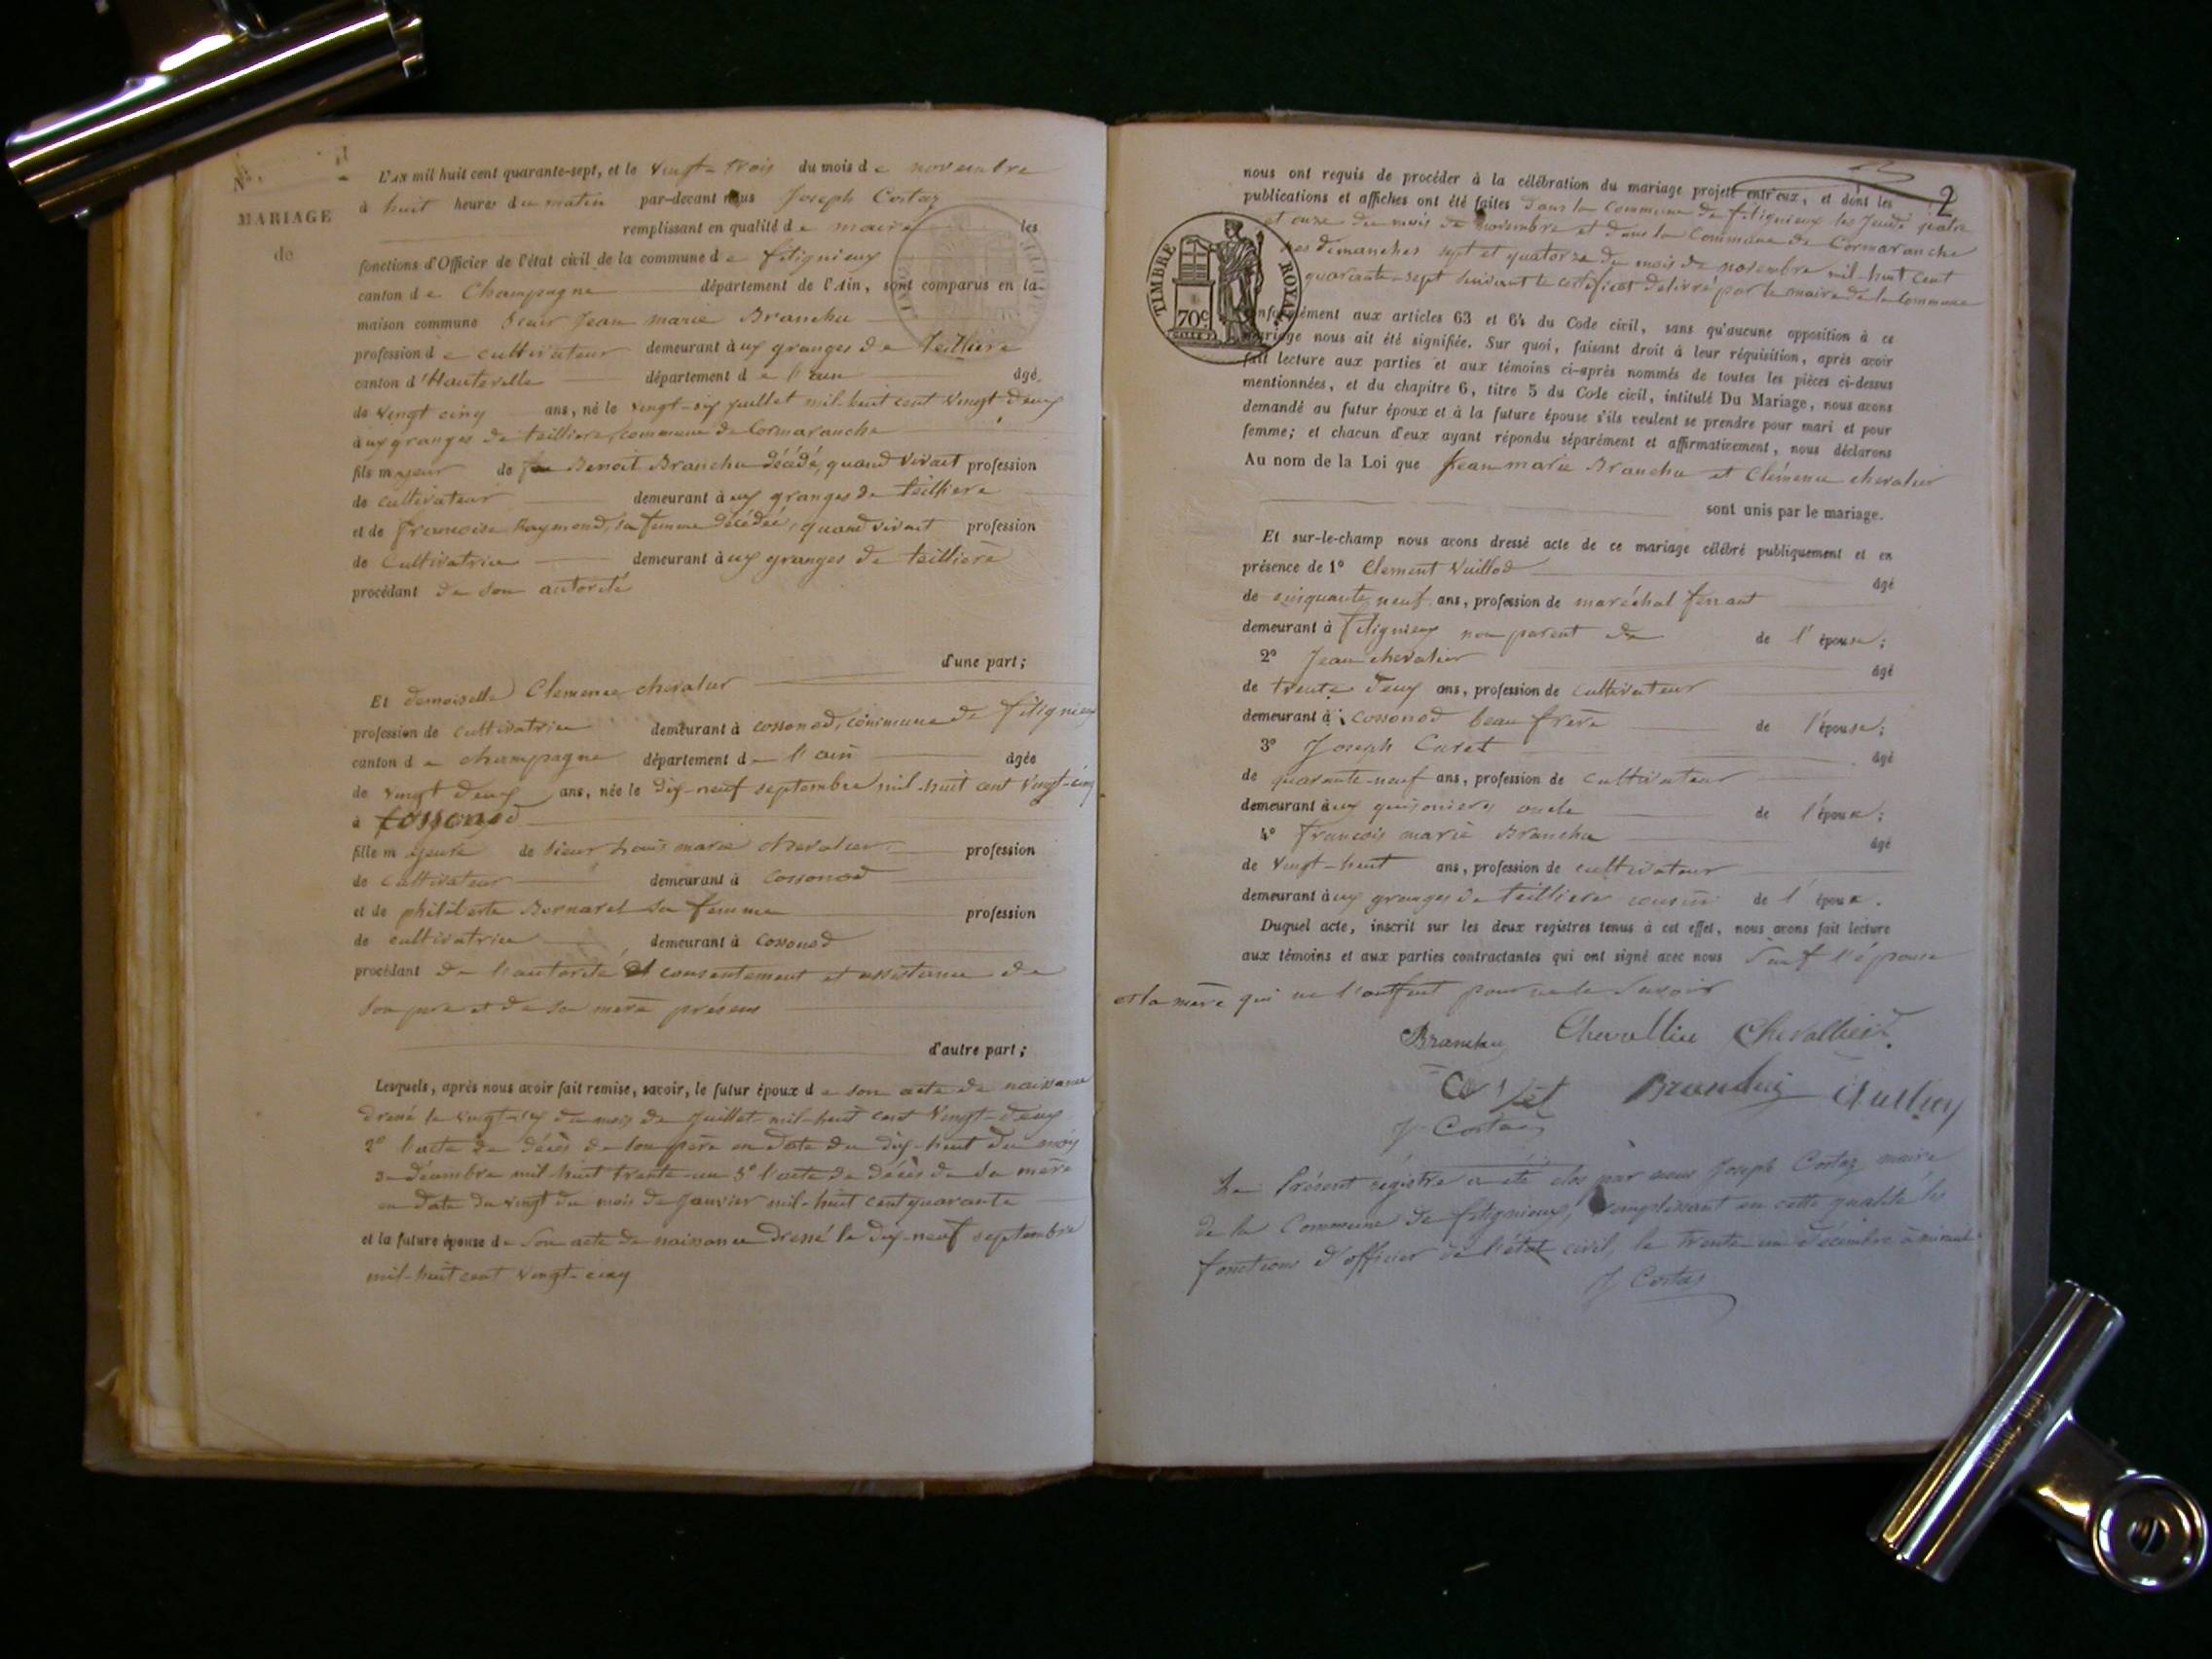 No.
MARIAGE
de
L'AN mil huit cent quarante-sept, et le vingt-trois du mois de novembre
à huit heures du matin par-devant nous Joseph Costaz
remplissant en qualité de maire les
fonctions d'Officier de l'état civil de la commune de fitignieux
canton de Champagne département de l'Ain, sont comparus en la
maison commune sieur Jean marie Branchu
profession de cultivateur demeurant aux granges de teilliere
canton d'Hauteville département de l'ain âgé
de vingt cinq ans, né le vingt-six juillet mil-huit cent vingt deux
aux granges de teilliere, commune de Cormaranche
fils majeur de feu Benoit Branchu décédé, quand vivait profession
de cultivateur demeurant aux granges de teilliere
et de francoise Raymond, sa femme décédée, quand vivait profession
de cultivatrice demeurant aux granges de teilliere
procédant de son autorité
d'une part;
Et demoiselle Clemence chevalier
profession de cultivatrice demeurant à cossonod, commune de fitignieux
canton de champagne département de l'ain âgée
de vingt deux ans, née le dix-neuf septembre mil-huit cent vingt-cinq
à Cossonod
fille majeure de sieur Louis marie chevalier profession
de cultivateur demeurant à cossonod
et de philiberte Bornarel sa femme profession
de cultivatrice demeurant à cossonod
procédant de l'autorité et consentement et assistance de
son père et de sa mère présens
d'autre part;
Lesquels, après nous avoir fait remise, savoir, le futur époux de son acte de naissance
dressé le vingt-six du mois de Juillet mil-huit cent vingt-deux
2° l'acte de décès de son père en date du dix-huit du mois
de décembre mil-huit trente-un 3° l'acte de décès de sa mère
en date du vingt du mois de Janvier mil-huit cent quarante
et la future épouse de son acte de naissance dressé le dix-neuf septembre
mil-huit cent vingt-cinq
2
nous ont requis de procéder à la célébration du mariage projeté entr'eux, et dont les
publications et affiches ont été faites dans la commune de fitignieux les Jeudi quatre
et onze du mois de novembre et dans la commune de Cormaranche
les dimanches sept et quatorze du mois de novembre mil-huit cent
quarante-sept suivant le certificat délivré par le maire de la commune
TIMBRE ROYAL
70c
conformément aux articles 63 et 64 du Code civil, sans qu'aucune opposition à ce
mariage nous ait été signifiée. Sur quoi, faisant droit à leur réquisition, après avoir
fait lecture aux parties et aux témoins ci-après nommés de toutes les pièces ci-dessus
mentionnées, et du chapitre 6, titre 5 du Code civil, intitulé Du Mariage, nous avons
demandé au futur époux et à la future épouse s'ils veulent se prendre pour mari et pour
femme; et chacun d'eux ayant répondu séparément et affirmativement, nous déclarons
Au nom de la Loi que Jean marie Branchu et Clémence chevalier
sont unis par le mariage.
Et sur-le-champ nous avons dressé acte de ce mariage célébré publiquement et en
présence de 1° Clement Vuillod âgé
de cinquante neuf ans, profession de maréchal ferrant
demeurant à fitignieux non parent de de l'épouse;
2° Jean chevalier âgé
de trente deux ans, profession de cultivateur
demeurant à cossonod beau frère de l'épouse;
3° Joseph Caret âgé
de quarante-neuf ans, profession de cultivateur
demeurant aux oncle de l'époux;
4° francois marie Branchu âgé
de vingt-huit ans, profession de cultivateur
demeurant aux granges de teilliere cousin de l'époux.
Duquel acte, inscrit sur les deux registres tenus à cet effet, nous avons fait lecture
aux témoins et aux parties contractantes qui ont signé avec nous sauf l'épouse
et la mère qui ne l'ont fait pour ne le savoir
Branchu Chevallier Chevallier
Branchu
J Costaz
Le Présent régistre a été clos par nous Joseph Costaz maire
de la Commune de fitignieux, remplissant en cette qualité les
fonctions d'officier de l'état civil, le trente-un décembre à minuit
J Costaz